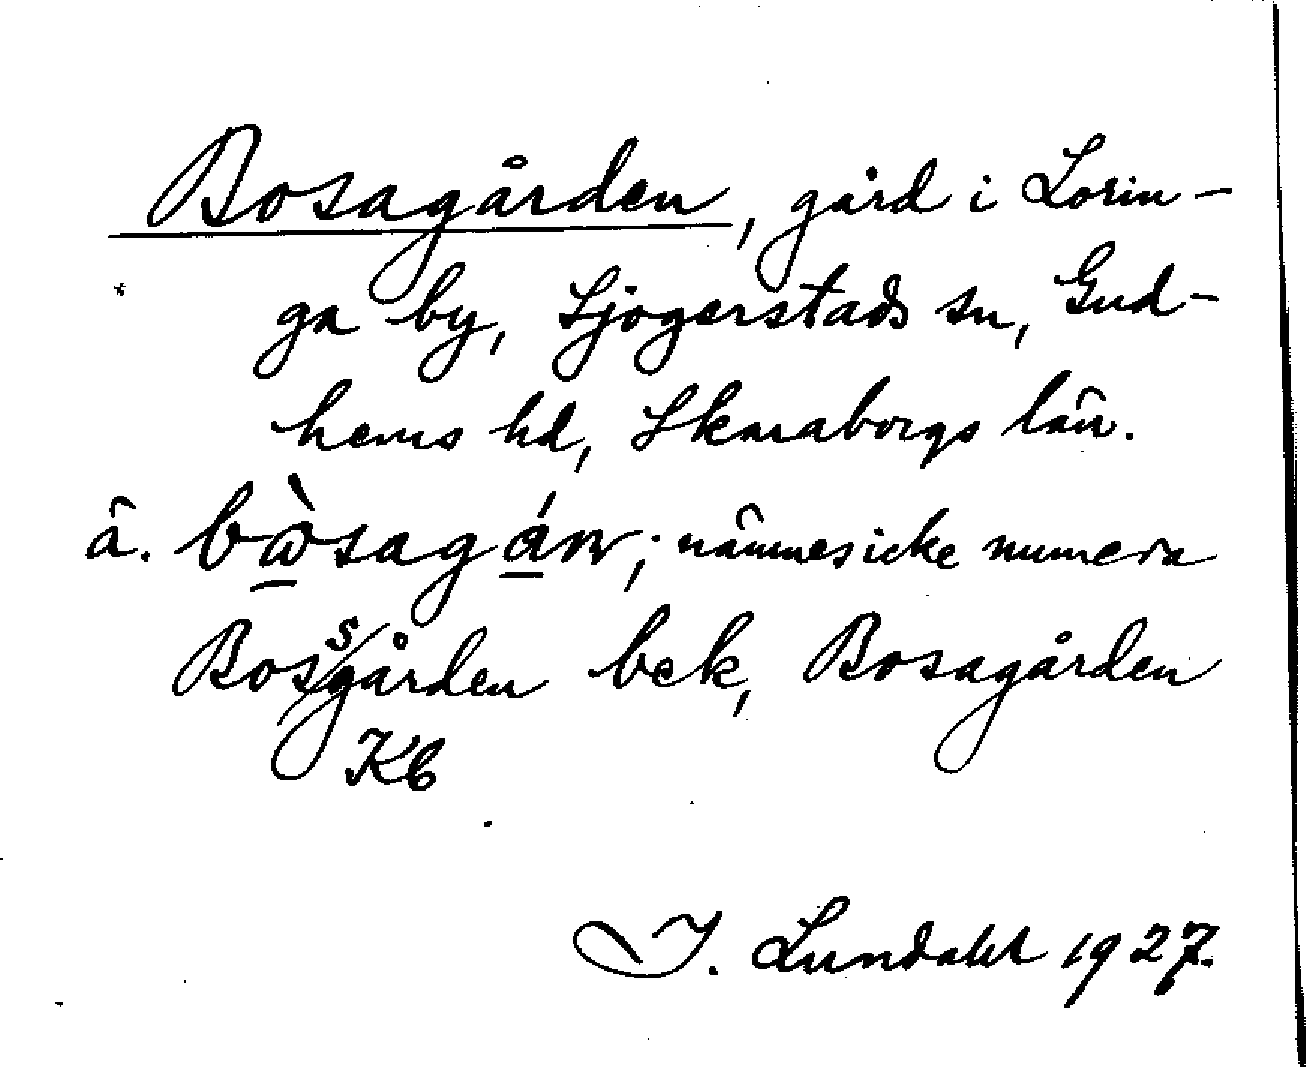 Bosagården, gård i Lorin-
ga by, Sjogerstads sn, Gud-
hems hd, Skaraborgs län.
ä. bɷ̀sagáɳ; nämnes icke numera
Bossgården bek, Bosagården
Kb
I. Lundahl 1927.